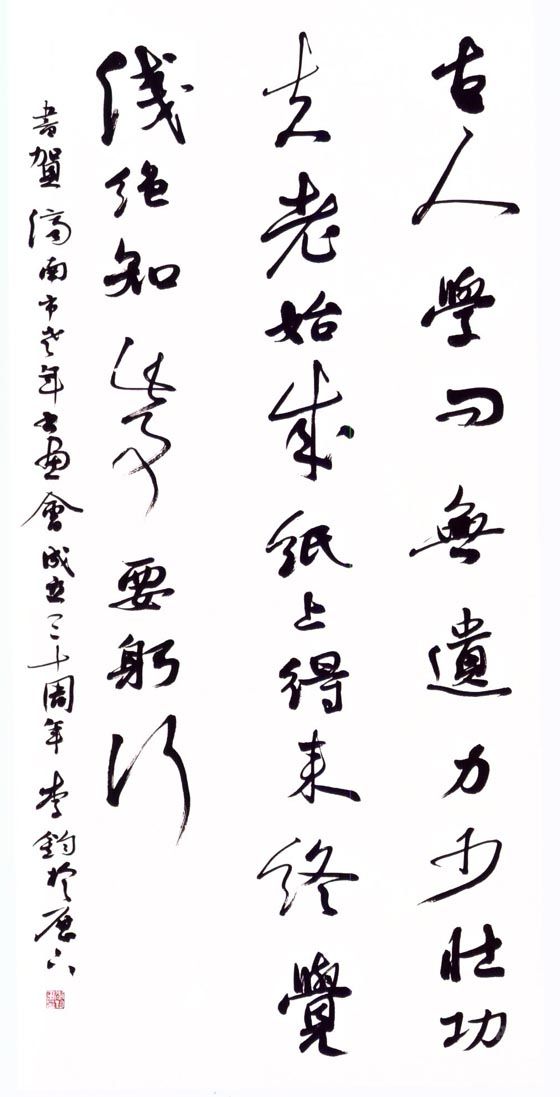 古人學問無遺力少壯功
夫老始成紙上得來終覺
淺絕知此事要躬行
書賀濟南市老年書畫會成立三十周年 李鈞於歷下